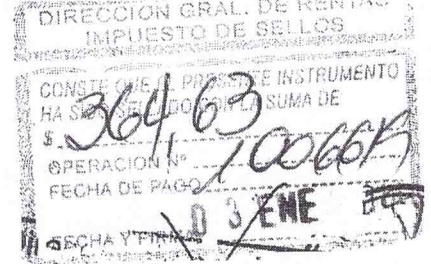 DIRECCION GRAL. DE RENTAS
IMPUESTO DE SELLOS
CONSTE QUE EL PRESENTE INSTRUMENTO
HA SIDO SELLADO CON LA SUMA DE
$ 364,63
OPERACION Nº
FECHA DE PAGO
03 ENE
FECHA Y FIRMA